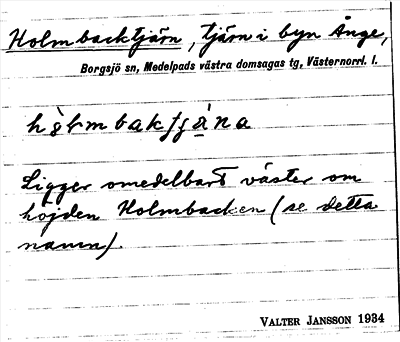 Holmbacktjärn, tjärn i byn Ånge,
Borgsjö sn, Medelpads västra domsagas tg, Västernorrl. l.
Ligger omedelbart väster om
höjden Holmbacken (se detta
namn).
VALTER JANSSON 1934